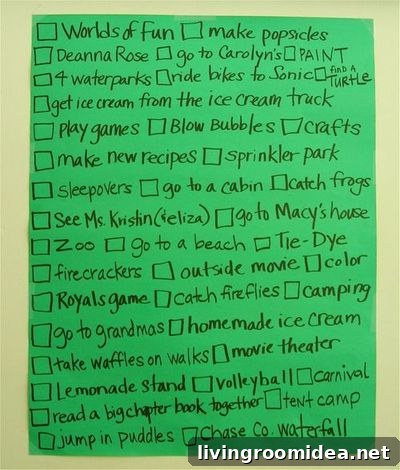 ☐ Worlds of Fun ☐ make popsicles
☐ Deanna Rose ☐ go to Carolyn's ☐ PAINT
☐ 4 waterparks ☐ ride bikes to Sonic ☐ find a TURTLE
☐ get ice cream from the ice cream truck
☐ Play games ☐ Blow Bubbles ☐ crafts
☐ make new recipes ☐ sprinkler park
☐ sleepovers ☐ go to a cabin ☐ catch frogs
☐ See Ms. Kristin (& eliza) ☐ go to Macy's house
☐ Zoo ☐ go to a beach ☐ Tie-Dye
☐ firecrackers ☐ outside movie ☐ color
☐ Royals game ☐ catch fireflies ☐ camping
☐ go to grandmas ☐ homemade ice cream
☐ take waffles on walks ☐ movie theater
☐ Lemonade Stand ☐ volleyball ☐ carnival
☐ read a big chapter book together ☐ tent camp
☐ jump in puddles ☐ Chase Co. waterfall
livingroomidea.net